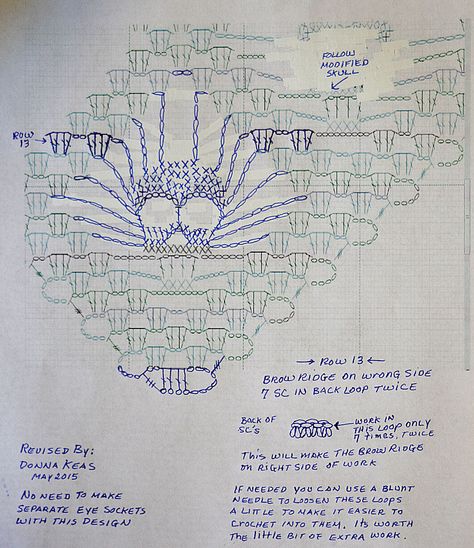 FOLLOW
MODIFIED
SKULL
ROW
13
→ ROW 13 ←
BROW RIDGE ON WRONG SIDE
7 SC IN BACK LOOP TWICE
BACK OF
SC'S
WORK IN
THIS LOOP ONLY
7 TIMES, TWICE
THIS WILL MAKE THE BROW RIDGE
ON RIGHT SIDE OF WORK
REVISED BY:
DONNA KEAS
MAY 2015
NO NEED TO MAKE
SEPARATE EYE SOCKETS
WITH THIS DESIGN
IF NEEDED YOU CAN USE A BLUNT
NEEDLE TO LOOSEN THESE LOOPS
A LITTLE TO MAKE IT EASIER TO
CROCHET INTO THEM. ITS WORTH
THE LITTLE BIT OF EXTRA WORK.